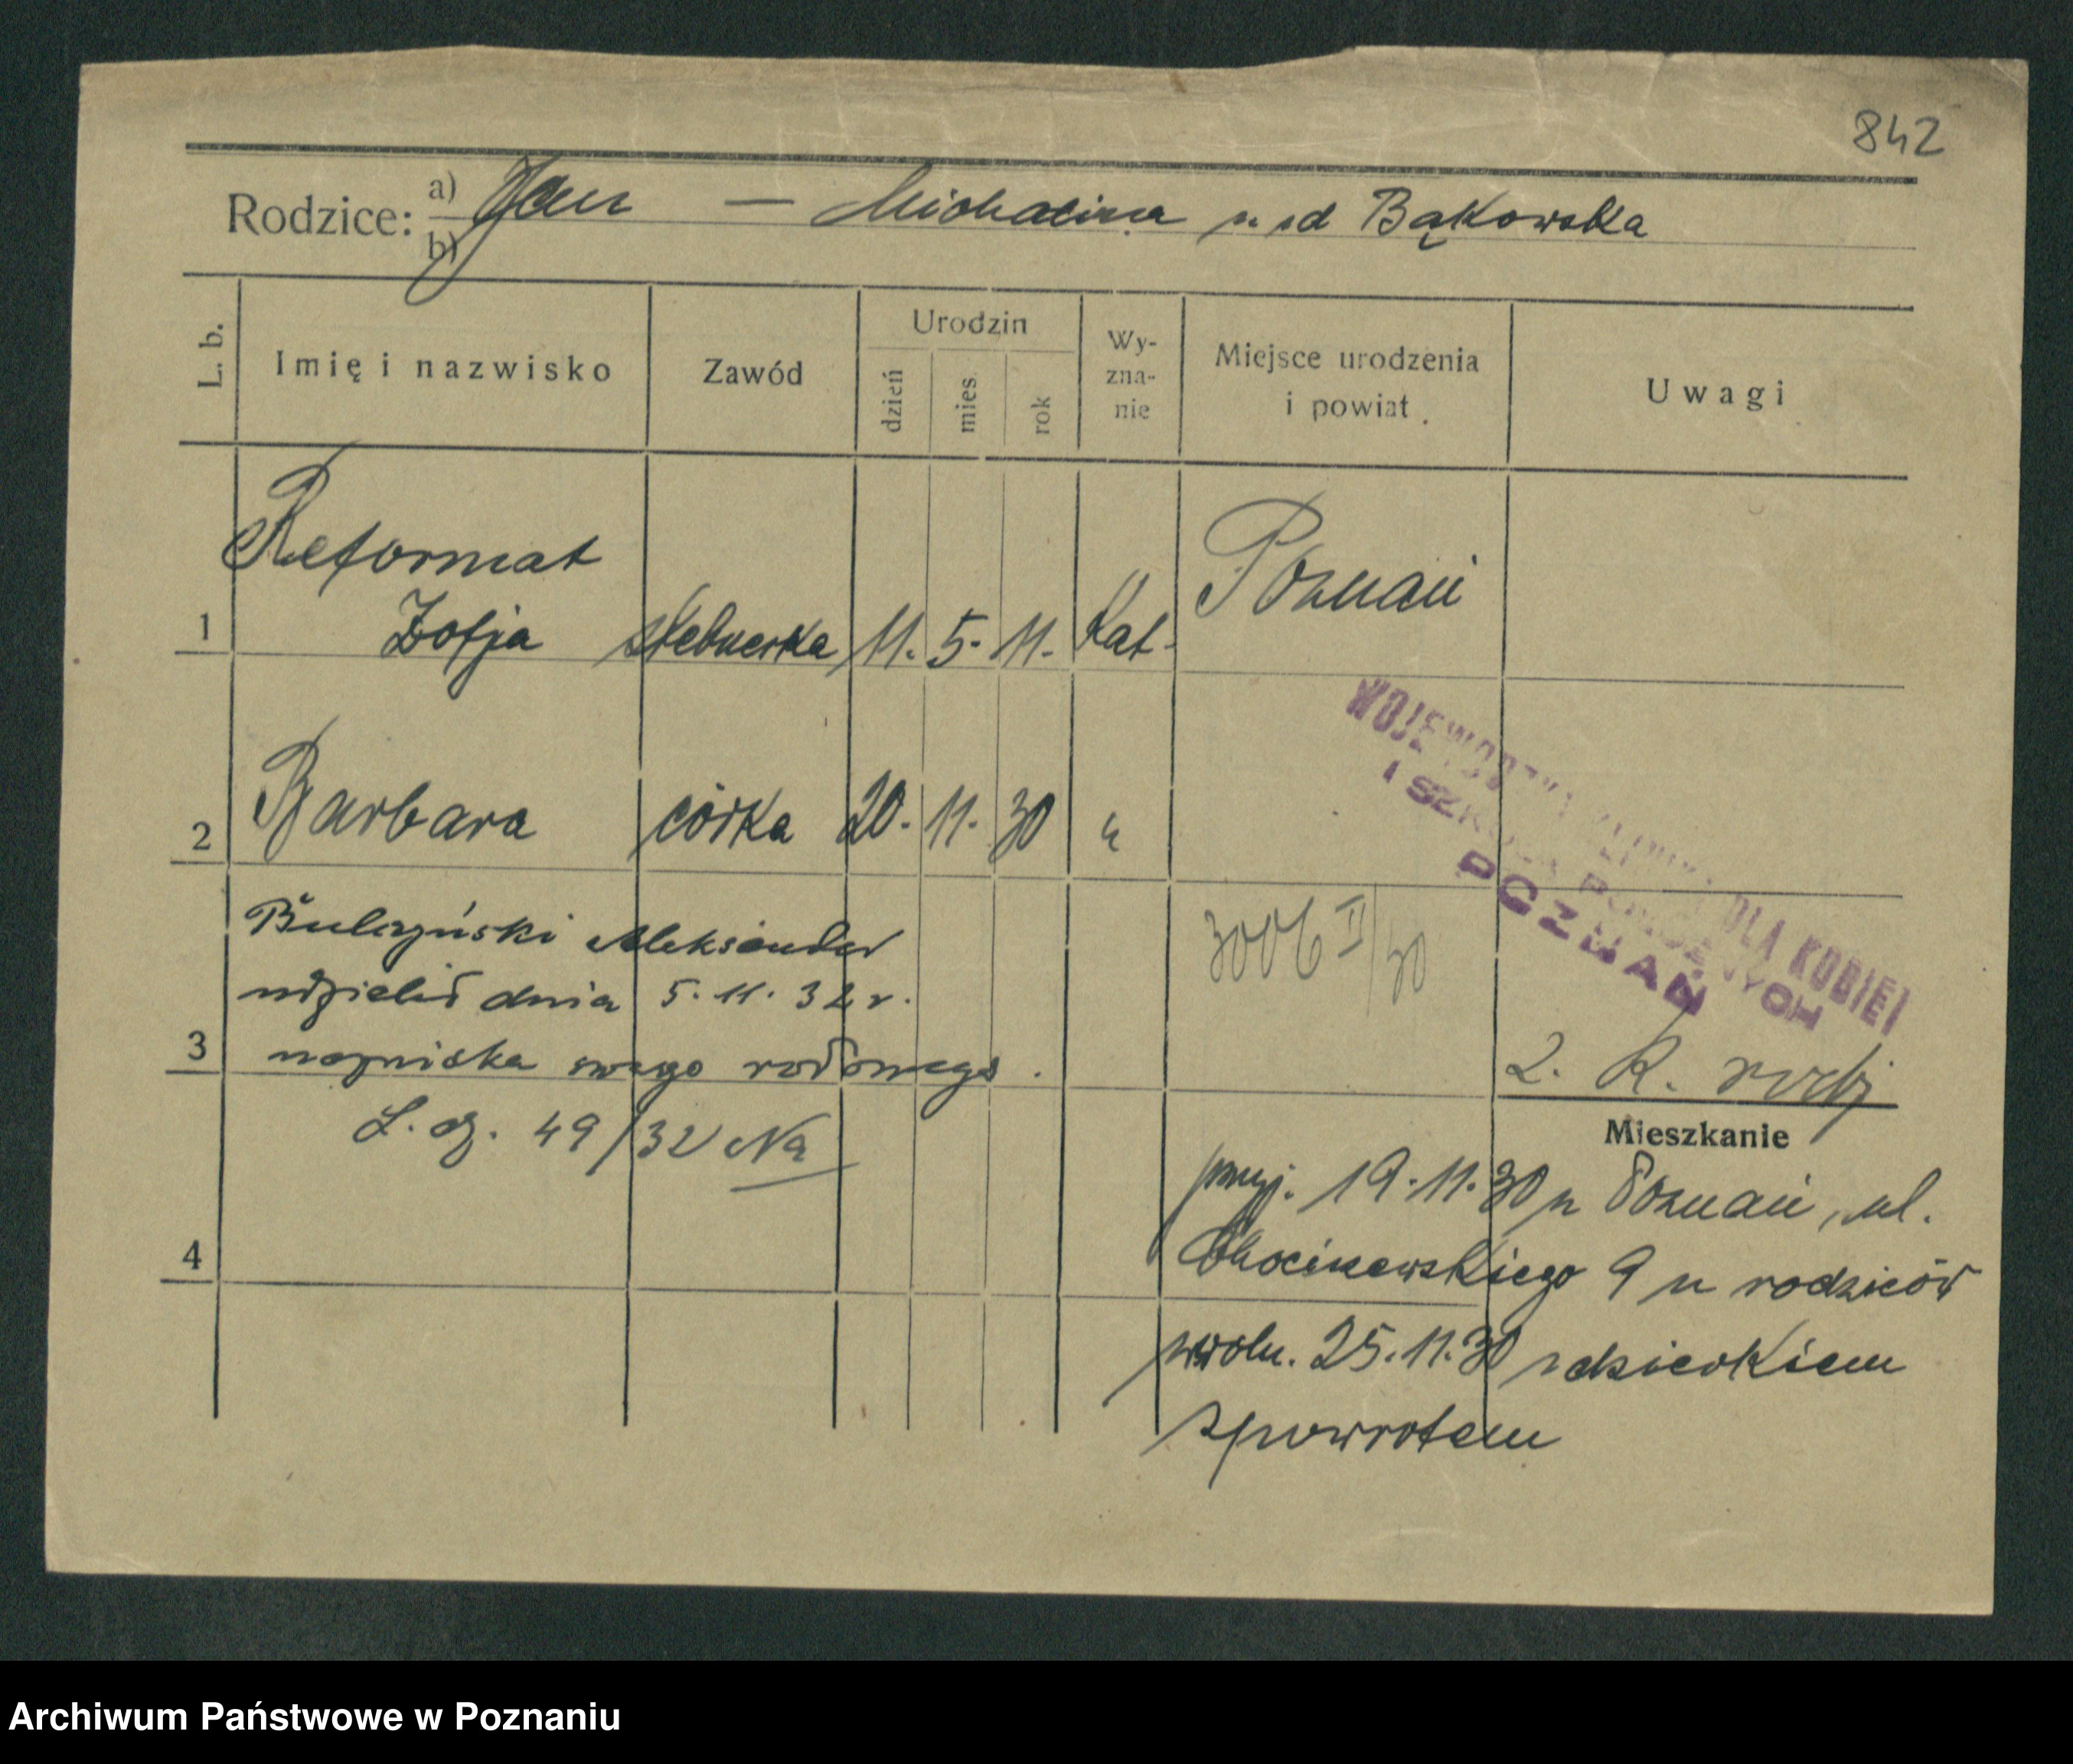 842
Rodzice: a) Jan — Michalina z d Bąkowska
b)
L. b.
Imię i nazwisko
Zawód
Urodzin
dzień
mies.
rok
Wy-
zna-
nie
Miejsce urodzenia
i powiat
Uwagi
Reformat Poznań
1 Zofja 11. 5. 11. Kat.
2 Barbara córka 20. 11. 30 "
WOJEWÓDZKA KLINIKA DLA KOBIET
I SZKOŁA POŁOŻNYCH
POZNAŃ
Aleksander
udzielił dnia 5. 11. 32 r. 3006 II/30
3 nazwiska swego rodowego.
2. R.
L. dz. 49/32
Mieszkanie
przyj. 19.11.30 z Poznań, ul.
4 9 u rodziców
zwoln. 25.11.30 z dzieckiem
zpowrotem
Archiwum Państwowe w Poznaniu